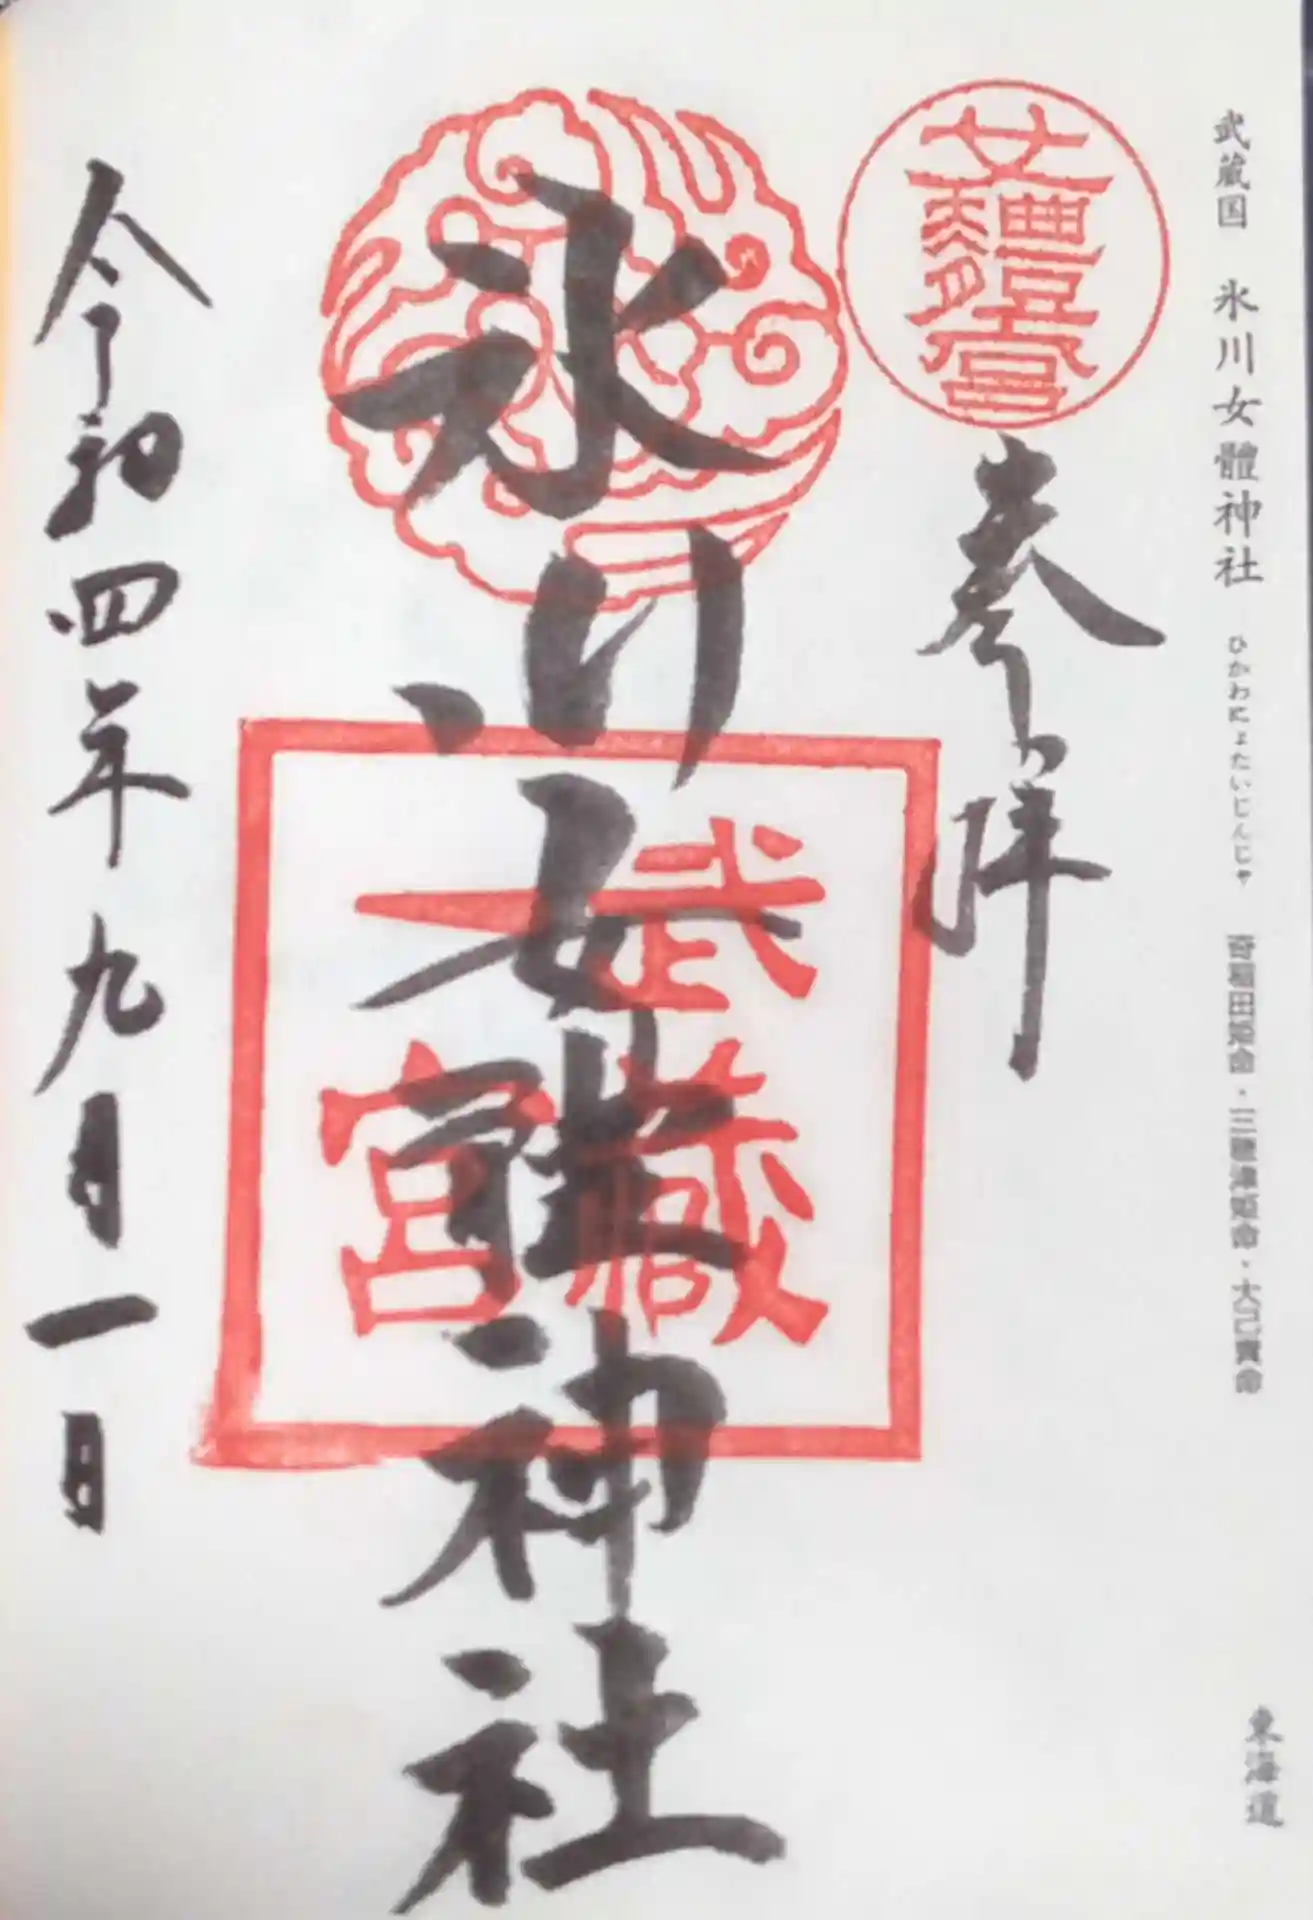 武蔵国 氷川女體神社 ひかわにょたいじんじゃ 奇稲田姫命・三穂津姫命・大己貴命
東海道
女體宮
奉拝
氷川女體神社
武蔵
宮
令和四年九月一日